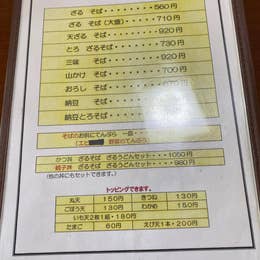 ざる そば・・・・・・・・560円
ざる そば(大盛)・・・・・710円
天ざる そば・・・・・・・920円
とろ ざるそば・・・・・・730円
三味 そば・・・・・・・・920円
山かけ そば・・・・・・・700円
おろし そば・・・・・・・670円
納豆 そば・・・・・・・
納豆とろそば・・・・・・
そばのお供にてんぷら 一皿・・・
(エビ 野菜のてんぷら)
かつ丼 ざるそば ざるうどんセット・・・1050円
親子丼 ざるそば ざるうどんセット・・・980円
(他の丼にもセットできます。)
トッピングできます。
丸天 150円 きつね 130円
ごぼう天 130円 わかめ 150円
いも天2枚1組・180円
たまご 60円 えび天1本・200円